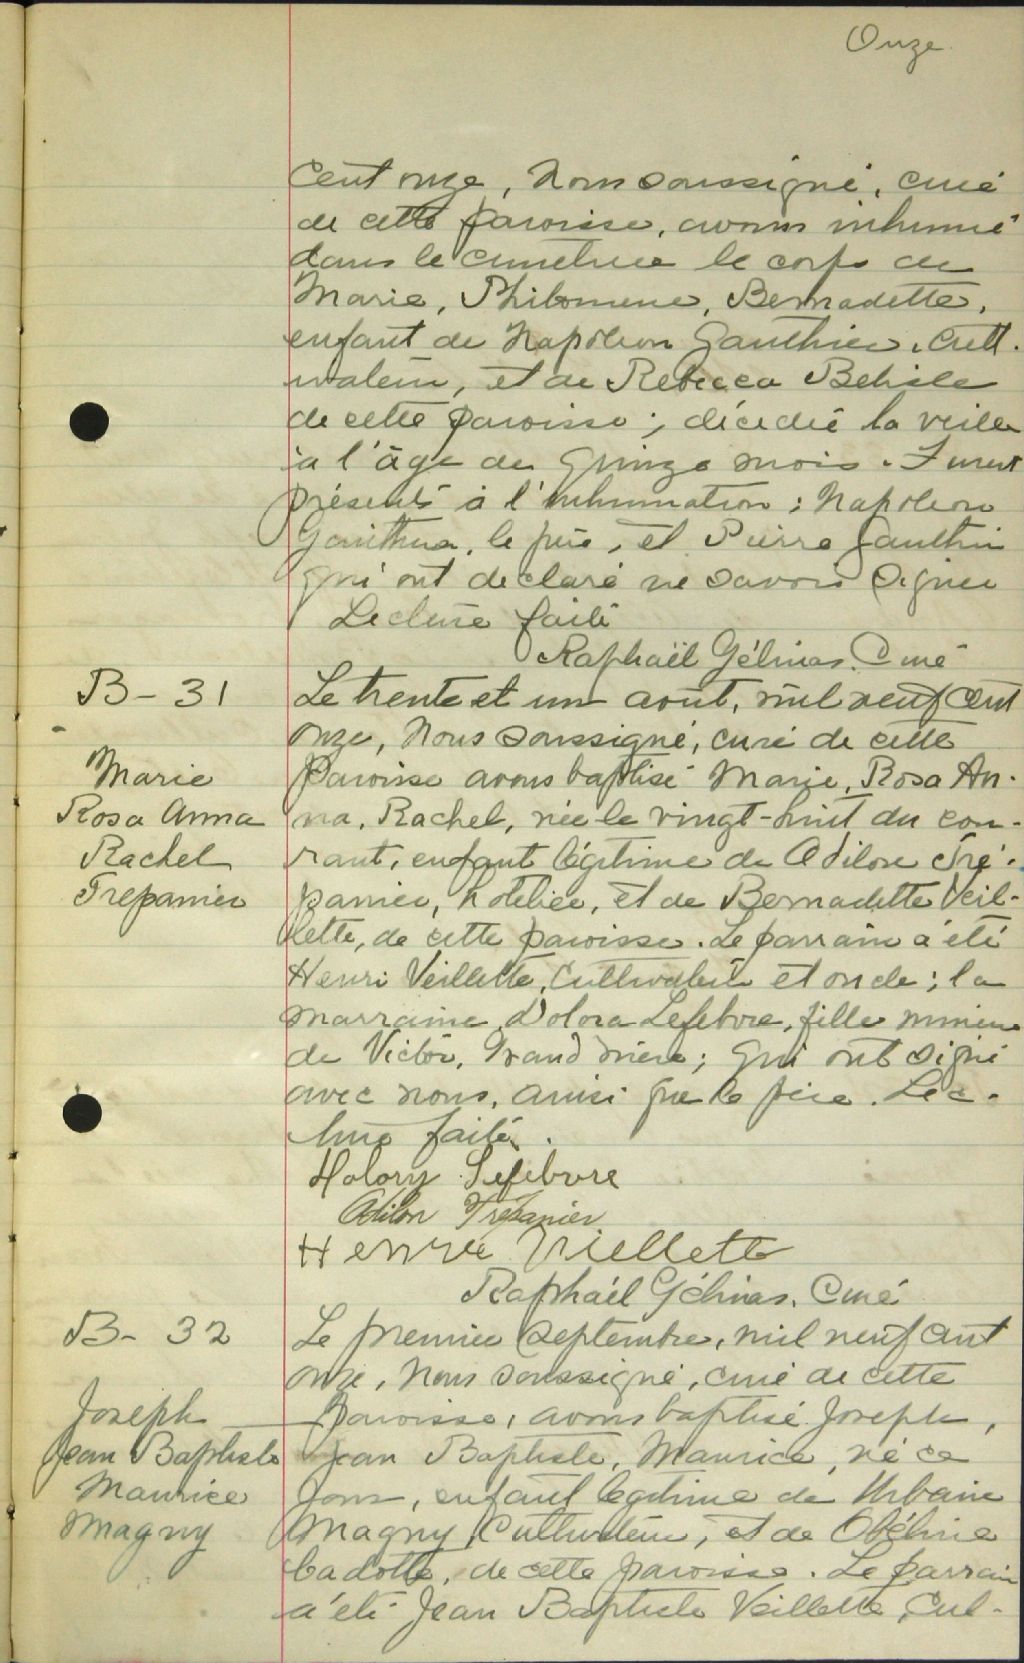 Onze
cent onze, Nous soussigné, curé
de cette paroisse, avons inhumé
dans le cimetière le corps de
Marie, Philomene, Bernadette,
enfant de Napoleon Gauthier, Cult-
ivateur, et de Rebecca Belisle
de cette paroisse; décédée la veille
à l'âge de quinze mois. Furent
présents à l'inhumation: Napoleon
Gauthier, le père, et Pierre Gauthier
qui ont declaré ne savoir signer
Lecture faite
Raphaël Gélinas. Curé
B- 31
Le trente et un août, mil neuf cent
onze, Nous soussigné, curé de cette
Marie
paroisse avons baptisé Marie, Rosa An-
Rosa Anna
na, Rachel, née le vingt-huit du cou-
Rachel
rant, enfant légitime de Adilon Tré-
Trepanier
panier, hotelier, et de Bernadette Veil-
lette, de cette paroisse. Le parrain a été
Henri Veillette, Cultivateur et oncle; la
marraine, Dolora Lefebvre, fille mineure
de Victor, Grand mère; qui ont signé
avec nous, ainsi que le père. Lec-
ture faite.
Holory Lefebvre
Adilon Trépanier
Henri Viellette
Raphaël Gélinas. Curé
B- 32
Le premier Septembre, mil neuf cent
onze, Nous soussigné, curé de cette
Joseph
paroisse, avons baptisé Joseph,
Jean Baptiste
Jean Baptiste, Maurice, né ce
Maurice
jour, enfant legitime de Urbain
Magny
Magny, Cultivateur, et de Obéline
Cadotte, de cette paroisse. Le parrain
a été Jean Baptiste Veillette, Cul-